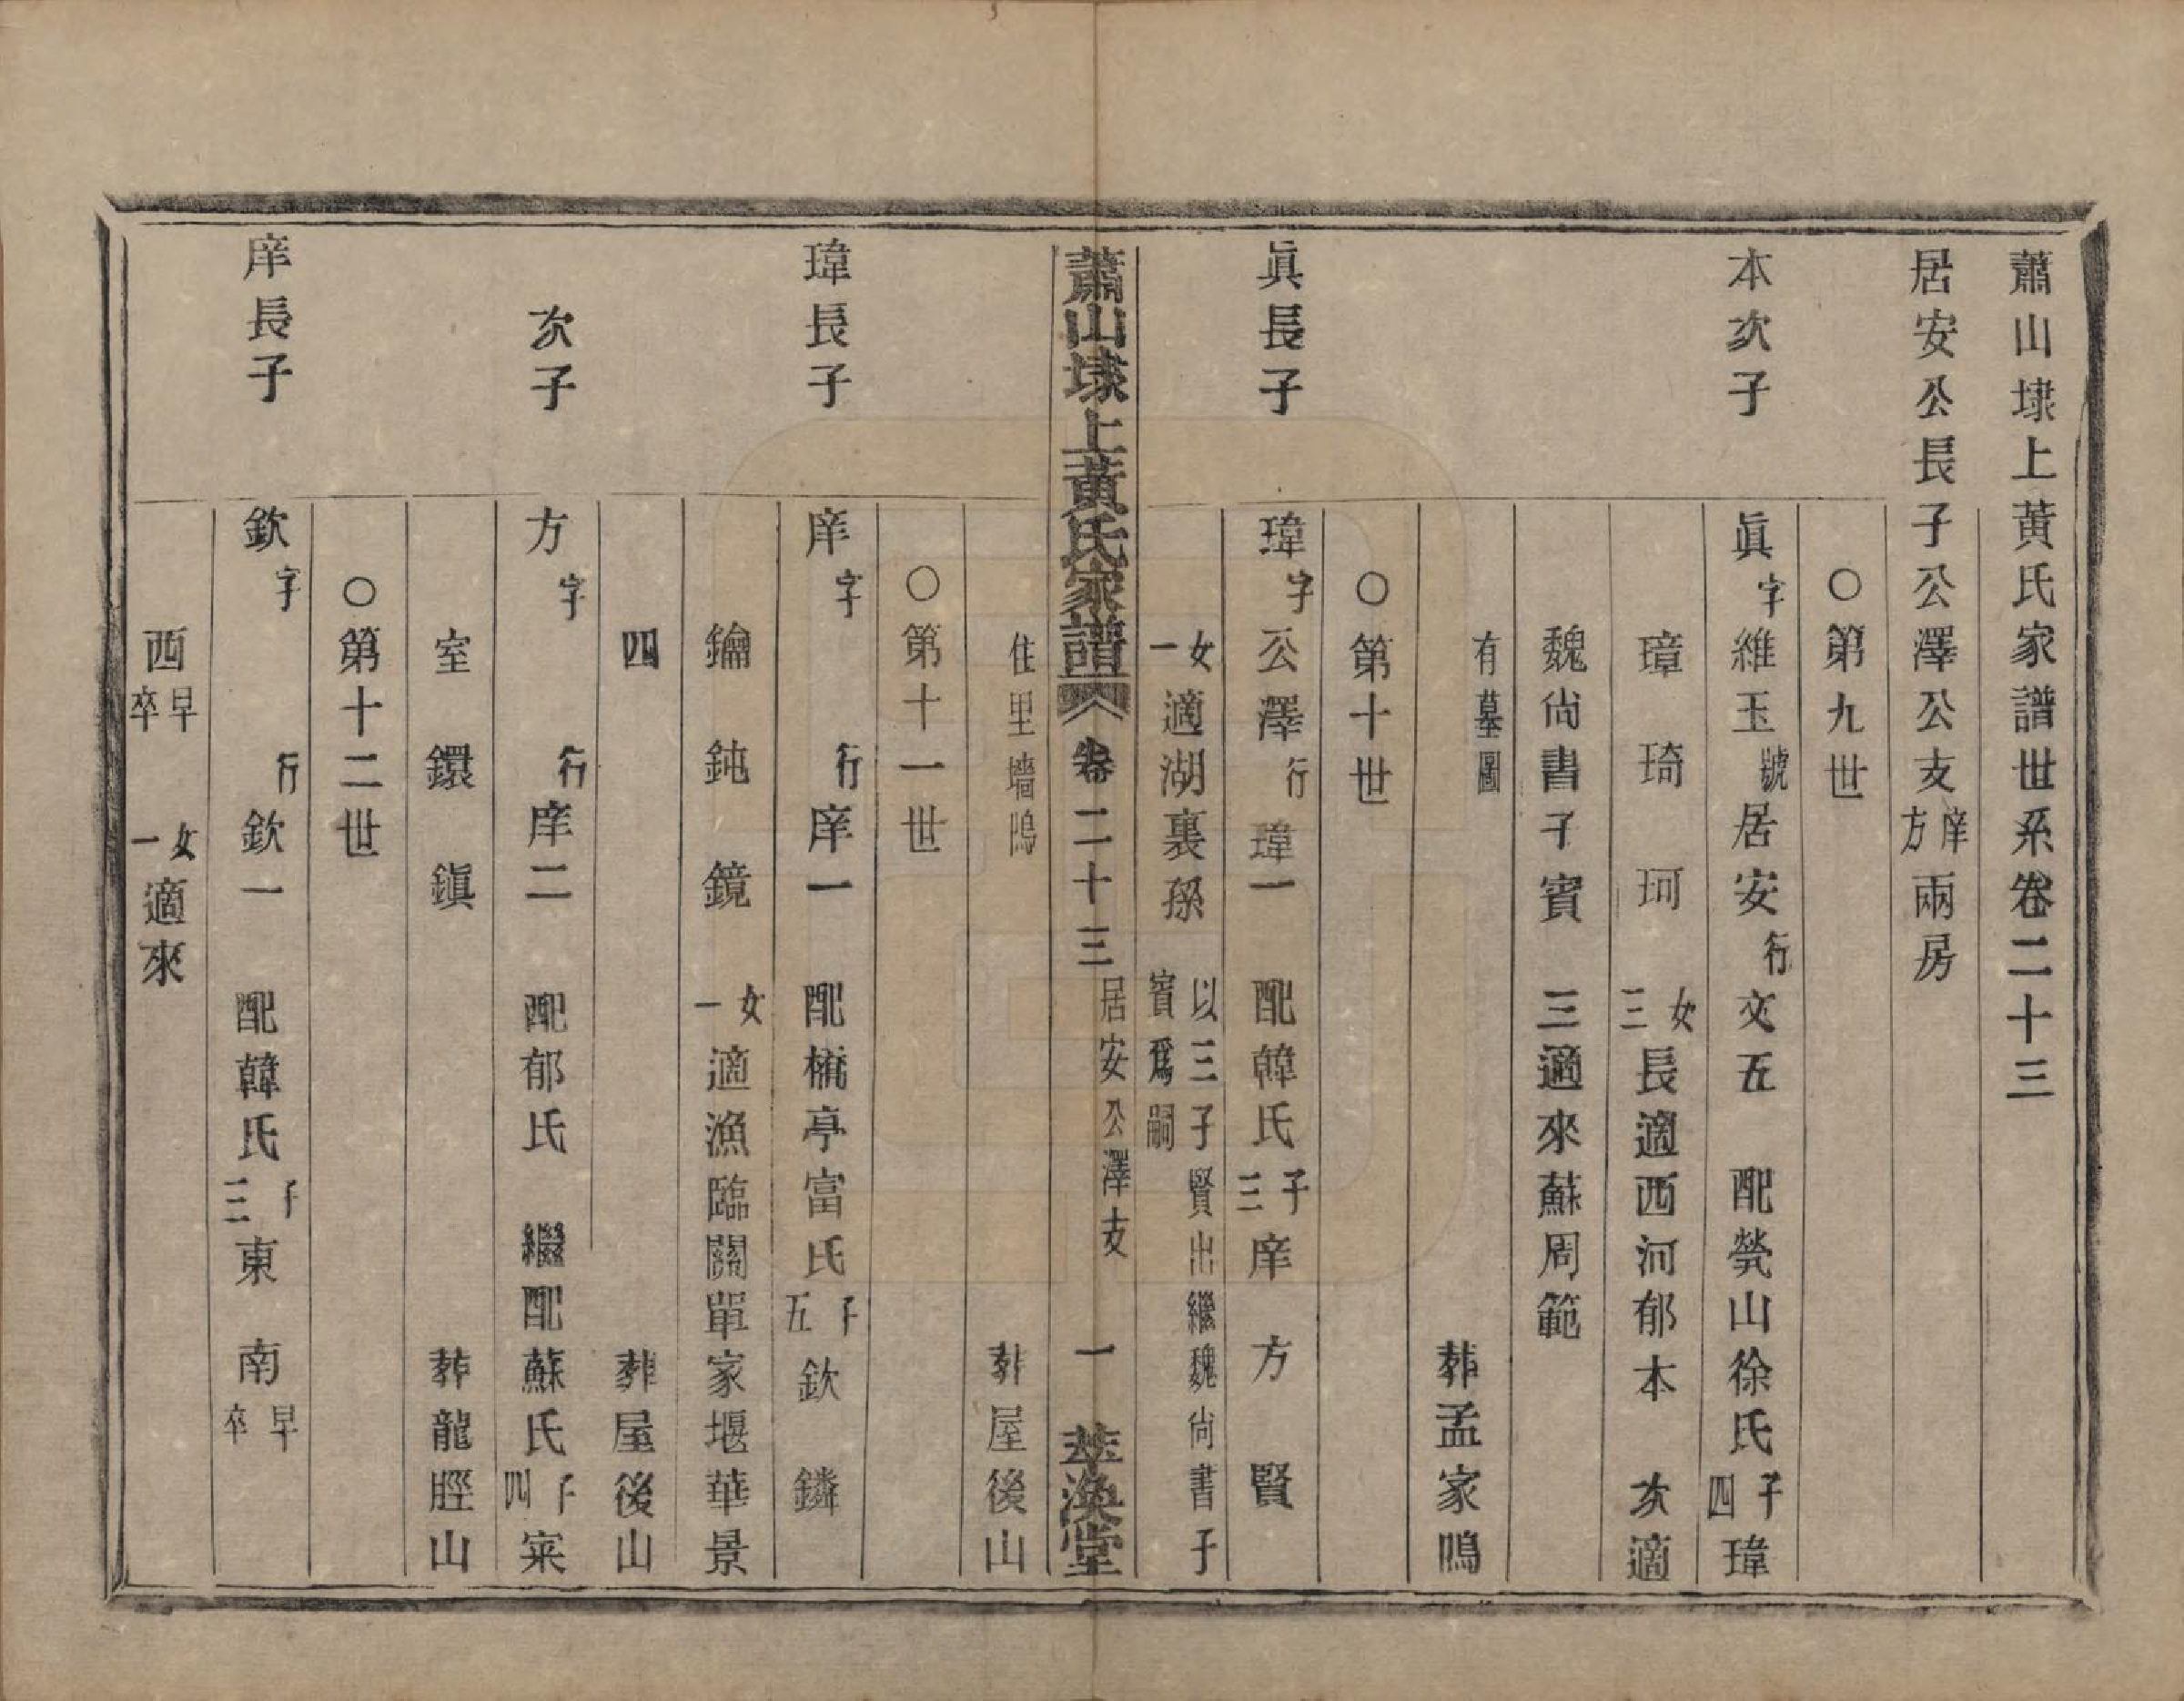 蕭山埭上黃氏家譜世系卷二十三
居安公長子公澤公支庠方兩房
○第九世
本次子 眞字維玉號居安行文五 配煢山徐氏子四瑋
璋 琦 珂 女三長適西河郁本 次適
魏尙書子賓 三適來蘇周範
有墓圖 葬孟家鳴
○第十世
眞長子 瑋字公澤行瑋一 配韓氏子三庠 方 賢
女一適湖裏孫 以三子賢出繼魏尙書子賓爲嗣
蕭山埭上黃氏家譜 卷二十三 居安公澤支 一 萃渙堂
住里墻鳴 葬屋後山
○第十一世
瑋長子 庠字 行庠一 配橋亭富氏子五 欽 鏻
鑰 鈍 鏡 女一適漁臨關單家堰華景
四 葬屋後山
次子 方字 行庠二 配郁氏 繼配蘇氏子四寀
室 鐶 鎭 葬龍脛山
○第十二世
庠長子 欽字 行欽一 配韓氏子三東 南早卒
西早卒 女一適來